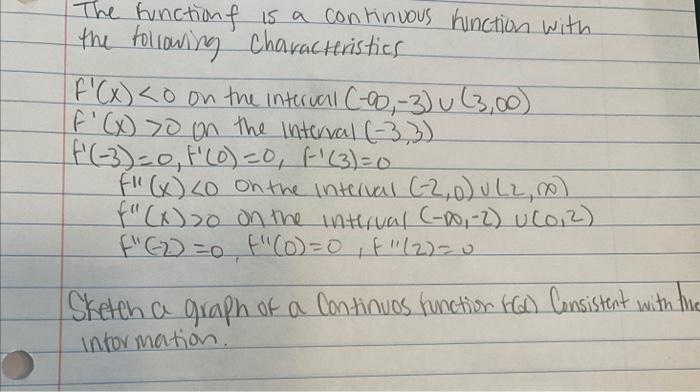 The function f is a continuous function with
the following characteristics
f'(x) <0 on the interval (-∞,-3) ∪ (3,∞)
f'(x) >0 on the interval (-3,3)
f'(-3)=0, f'(0)=0, f'(3)=0
f''(x) <0 on the interval (-2,0) ∪ (2,∞)
f''(x) >0 on the interval (-∞,-2) ∪ (0,2)
f''(-2) =0, f''(0)=0, f''(2)=0
Sketch a graph of a Continuos function f(x) Consistent with the
information.